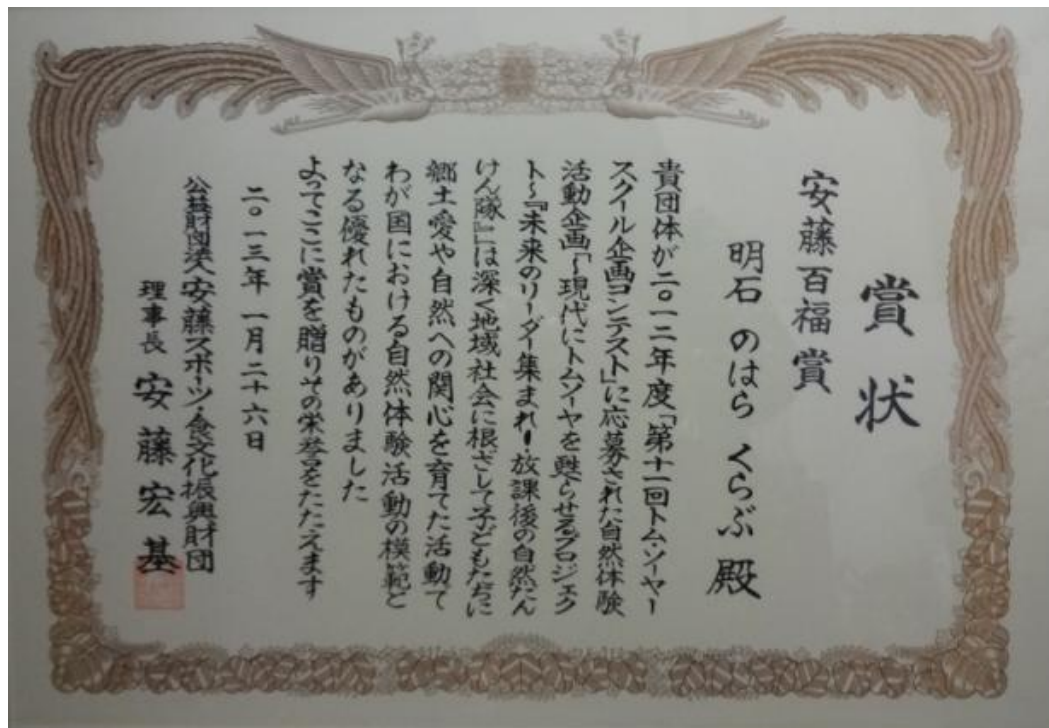 賞状
安藤百福賞
明石 のはら くらぶ 殿
貴団体が二〇一二年度「第十一回トム・ソーヤー
スクール企画コンテスト」に応募された自然体験
活動企画「～現代にトムソーヤを甦らせるプロジェク
ト～『未来のリーダー集まれ!放課後の自然たん
けん隊』」は深く地域社会に根ざして子どもたちに
郷土愛や自然への関心を育てた活動で
わが国における自然体験活動の模範と
なる優れたものがありました
よってここに賞を贈りその栄誉をたたえます
二〇一三年一月二十六日
公益財団法人安藤スポーツ・食文化振興財団
理事長 安藤宏基